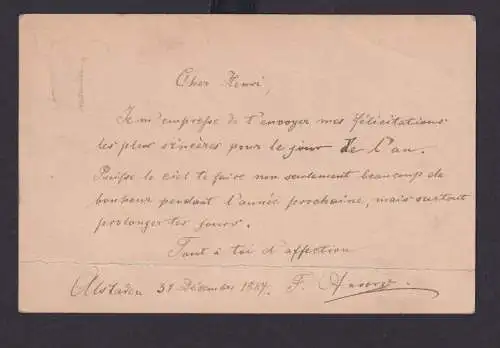 Cher Henri,
Je m'empresse de t'envoyer mes félicitations
les plus sincères pour le jour de l'an.
Puisse le ciel te faire non seulement beaucoup de
bonheur pendant l'année prochaine, mais surtout
prolonger tes jours.
Tout à toi d'affection
Alstaden 31 Décembre 1887. F.